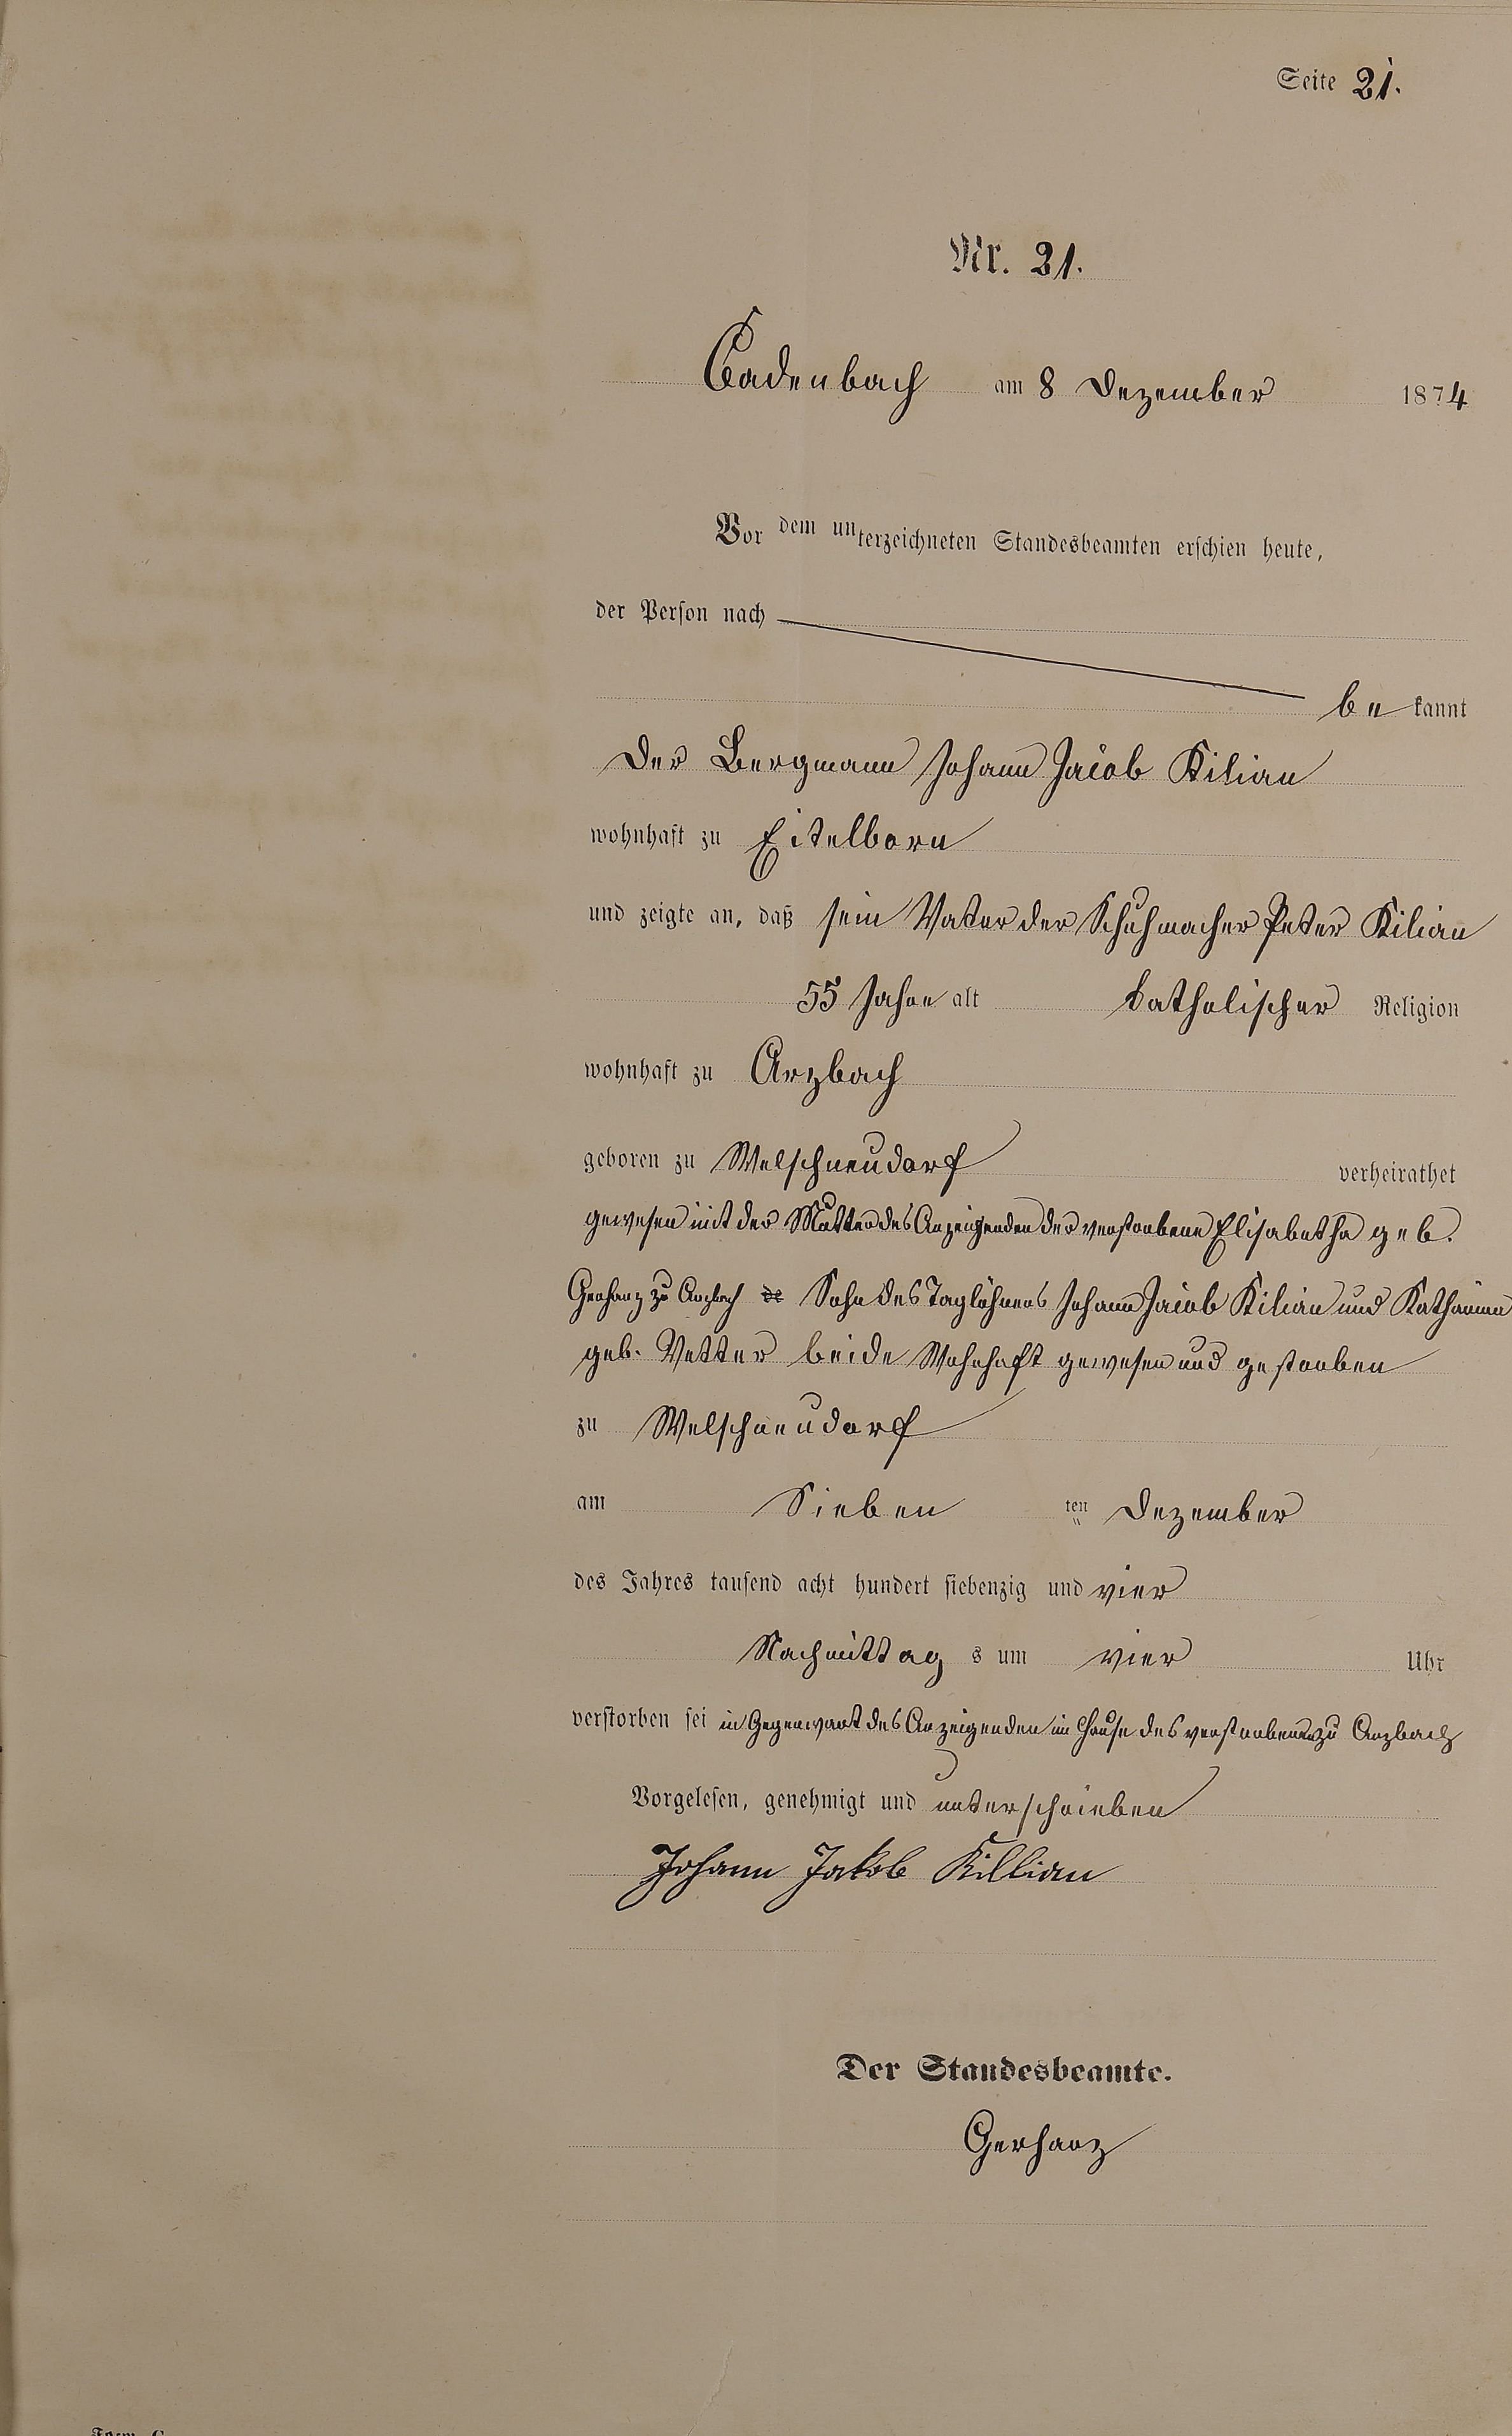 Seite 21.
Nr. 21.
Cadenbach am 8 Dezember 1874
Vor dem unterzeichneten Standesbeamten erschien heute,
der Person nach
be kannt
Der Bergmann Johann Jacob Kilian
wohnhaft zu Eitelborn
und zeigte an, daß sein Vater der Schuhmacher Peter Kilian
55 Jahre alt katholischer Religion
wohnhaft zu Arzbach
geboren zu Welschneudorf verheirathet
gewesen mit der Mutter des Anzeigenden der verstorbene Elisabetha geb.
Gerharz zu Arzbach Sohn des Taglöhners Johann Jacob Kilian und Katharina
geb. Vetter beide Wohnhaft gewesen und gestorben
zu Welschneudorf
am Sieben ten Dezember
des Jahres tausend acht hundert siebenzig und vier
Nachmittag s um vier Uhr
verstorben sei in Gegenwart des Anzeigenden im Hause des verstorbenen zu Arzbach
Vorgelesen, genehmigt und unterschrieben
Johann Jakob Killian
Der Standesbeamte.
Gerharz